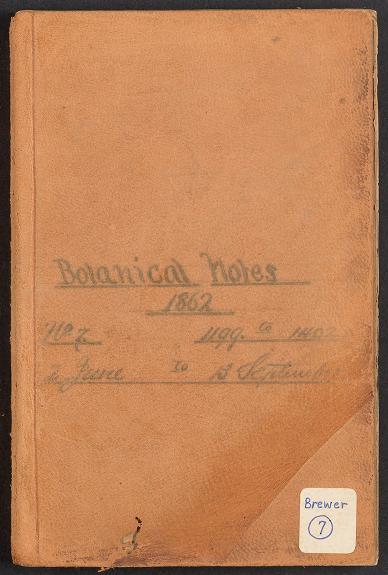 Botanical Notes
1862
No 7 1199. to 1402
2 June To 13 September
Brewer
7